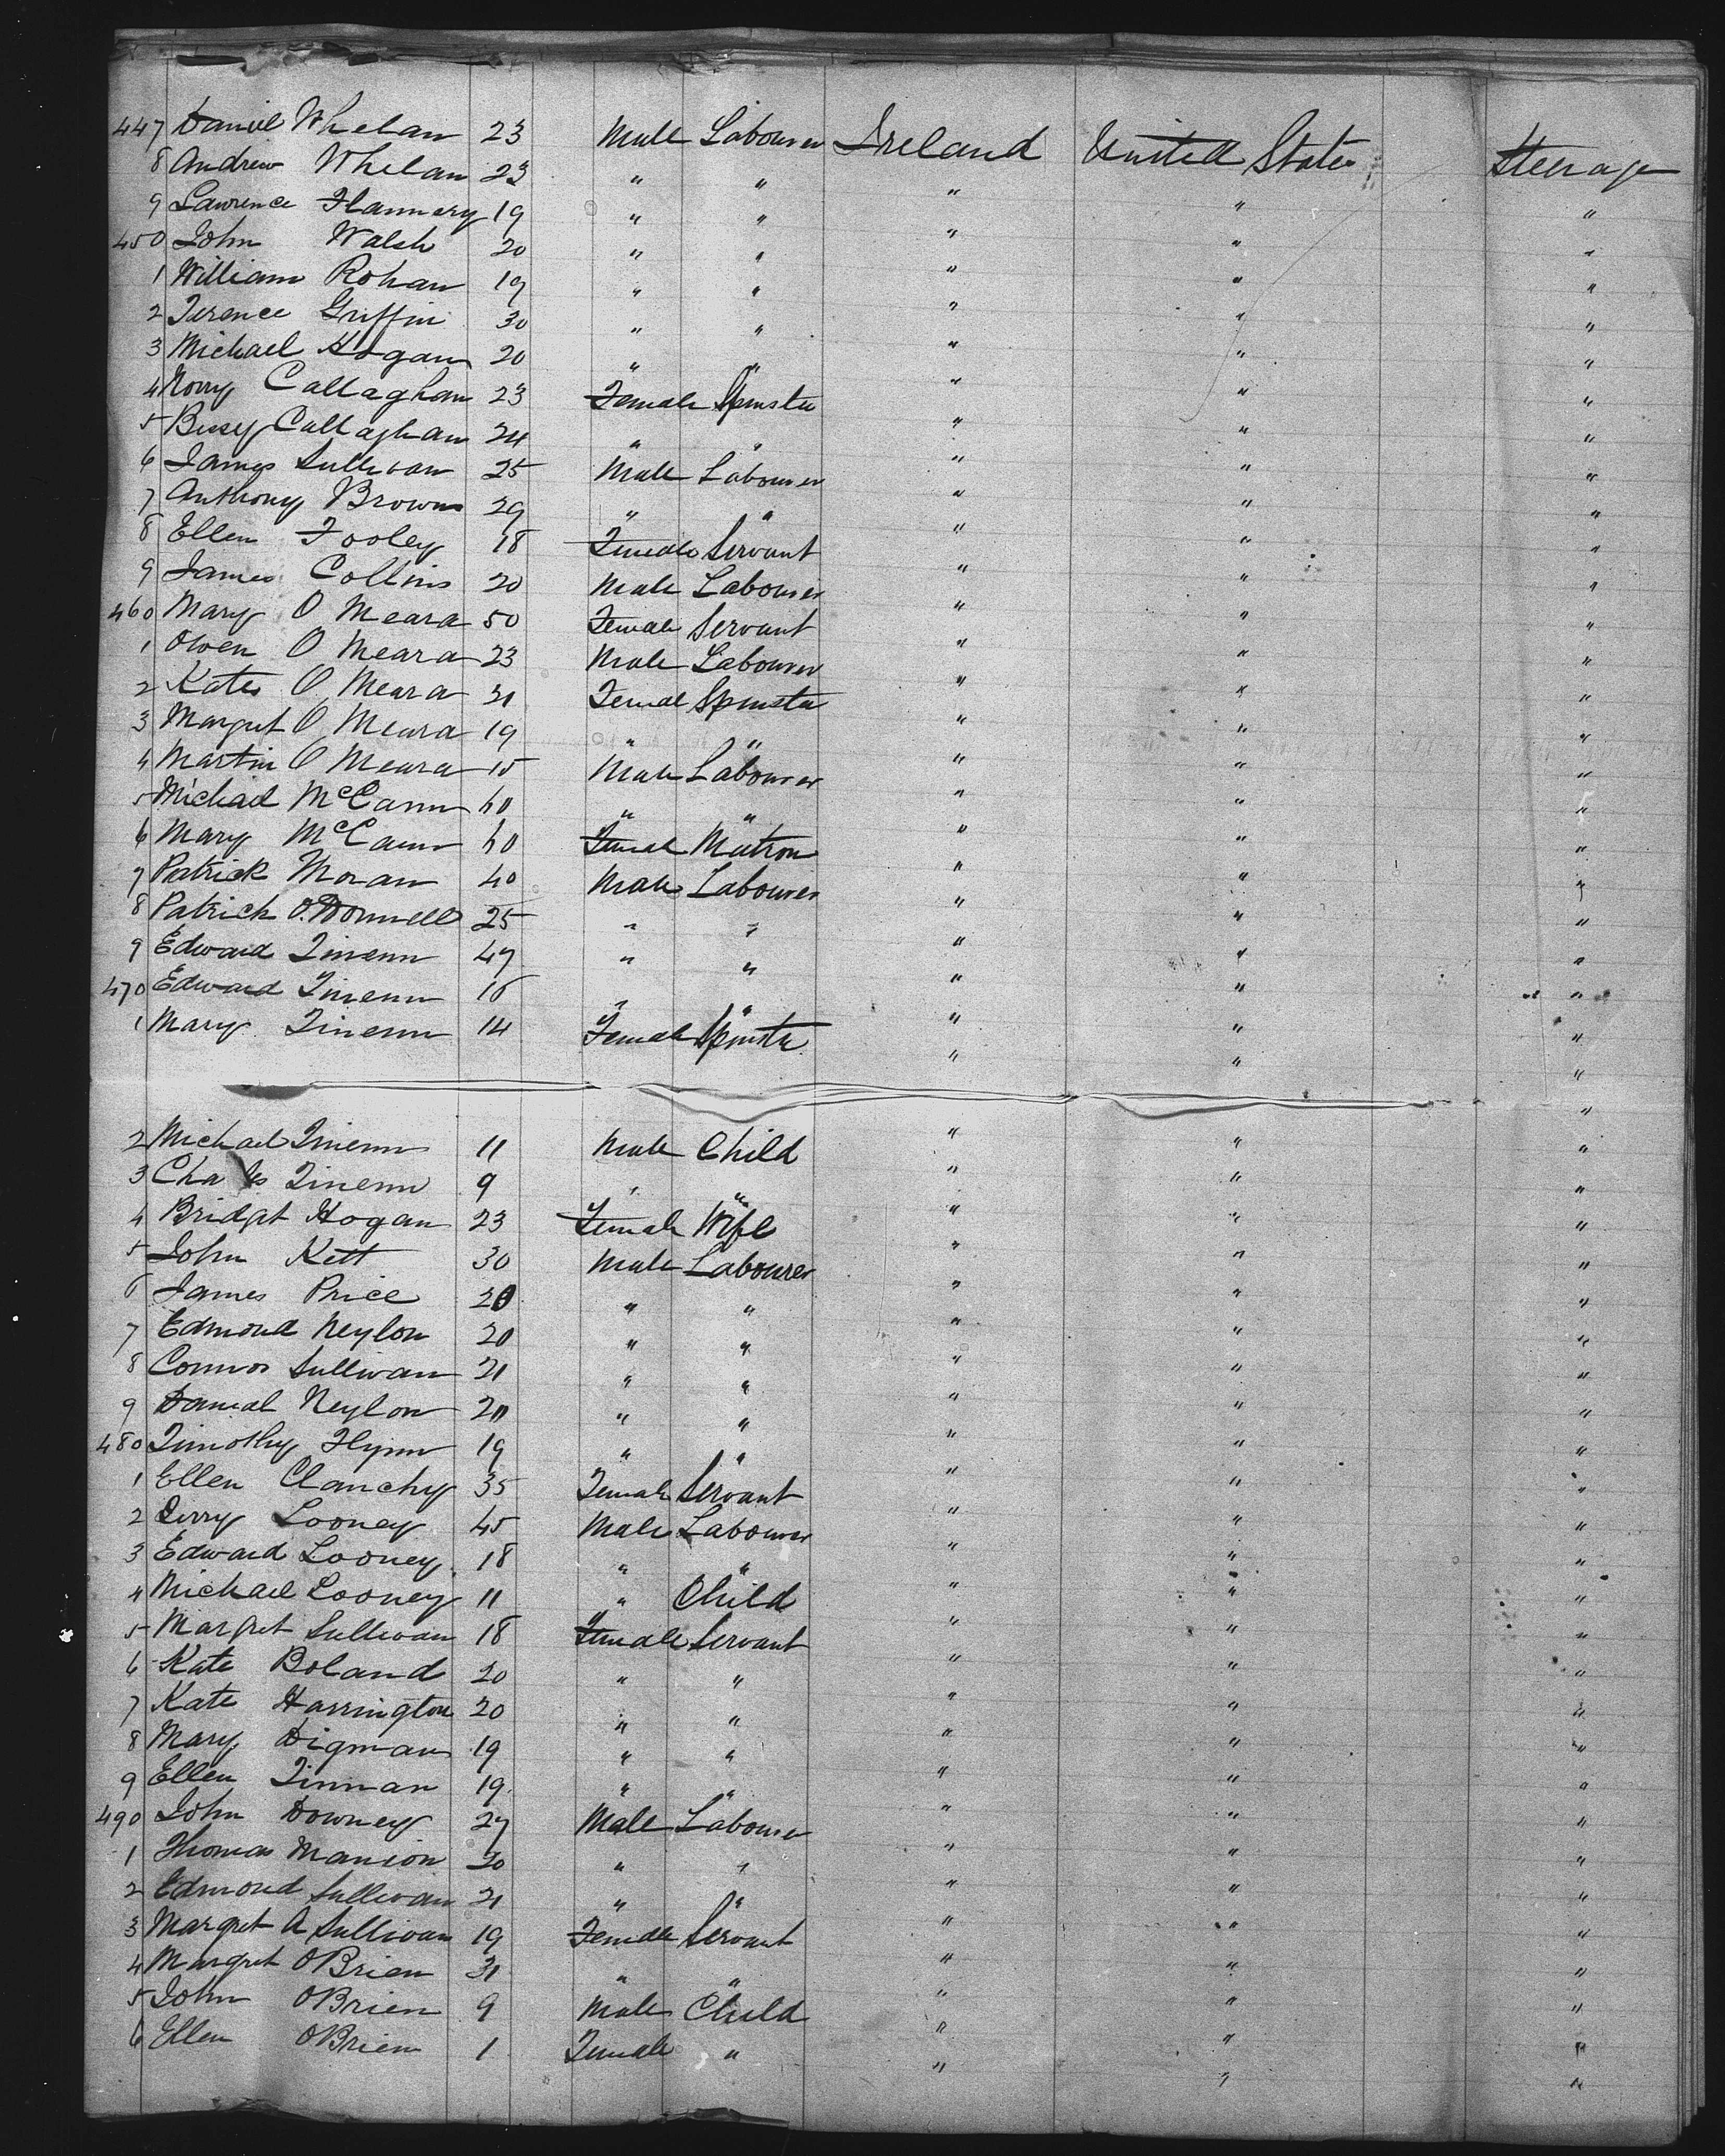 447 Daniel Whelan 23 Male Labourer Ireland United States Steerage
8 Andrew Whelan 23 " " " " "
9 Lawrence Flannery 19 " " " " "
450 John Walsh 20 " " " " "
1 William Rohan 19 " " " " "
2 Terence Griffin 30 " " " " "
3 Michael Hogan 20 " " " " "
4 Norry Callaghan 23 Female Spinster " " "
5 Bessy Callaghan 24 " " " " "
6 James Sullivan 25 Male Labourer " " "
7 Anthony Brown 29 " " " " "
8 Ellen Fooley 18 Female Servant " " "
9 James Collins 20 Male Labourer " " "
460 Mary O Meara 50 Female Servant " " "
1 Owen O Meara 23 Male Labourer " " "
2 Kate O Meara 21 Female Spinster " " "
3 Margret O Meara 19 " " " " "
4 Martin O Meara 15 Male Labourer " " "
5 Michael McCann 60 " " " " "
6 Mary McCann 60 Female Matron " " "
7 Patrick Moran 40 Male Labourer " " "
8 Patrick O.Donnell 25 " " " " "
9 Edward Tinenn 47 " " " " "
470 Edward Tinenn 16 " " " " "
1 Mary Tinenn 14 Female Spinster " " "
2 Michael Tinenn 11 Male Child " " "
3 Charles Tinenn 9 " " " " "
4 Bridget Hogan 23 Female Wife " " "
5 John Kett 30 Male Labourer " " "
6 James Price 20 " " " " "
7 Edmond Neylon 20 " " " " "
8 Connor Sullivan 21 " " " " "
9 Daniel Neylon 20 " " " " "
480 Timothy Flynn 19 " " " " "
1 Ellen Clanchy 35 Female Servant " " "
2 Derry Looney 45 Male Labourer " " "
3 Edward Looney 18 " " " " "
4 Michael Looney 11 " Child " " "
5 Margret Sullivan 18 Female Servant " " "
6 Kate Boland 20 " " " " "
7 Kate Harrington 20 " " " " "
8 Mary Digman 19 " " " " "
9 Ellen Tinnan 19 " " " " "
490 John Downey 27 Male Labourer " " "
1 Thomas Manion 20 " " " " "
2 Edmond Sullivan 21 " " " " "
3 Margret A Sullivan 19 Female Servant " " "
4 Margret OBrien 31 " " " " "
5 John OBrien 9 Male Child " " "
6 Ellen OBrien 1 Female " " " "